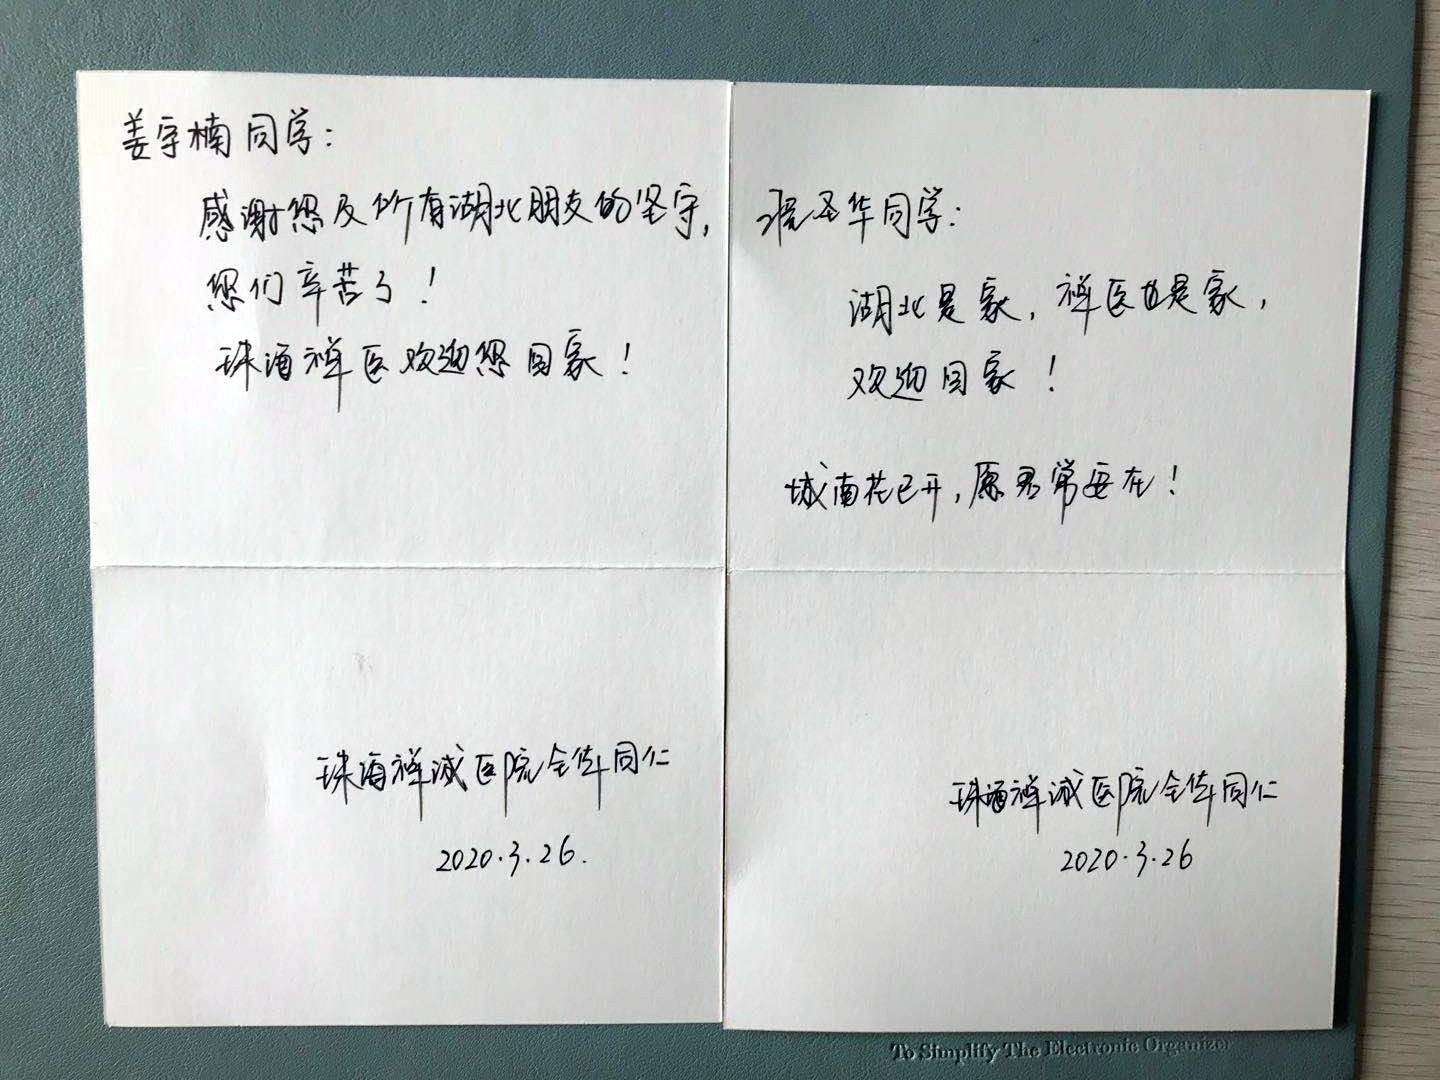 姜宇楠同学：
感谢您及所有湖北朋友的坚守，
您们辛苦了！
珠海禅医欢迎您回家！
珠海禅诚医院全体同仁
2020.3.26.
圣华同学：
湖北是家，禅医也是家，
欢迎回家！
城南花已开，愿君常安在！
珠海禅诚医院全体同仁
2020.3.26
To Simplify The Electronic Organizer